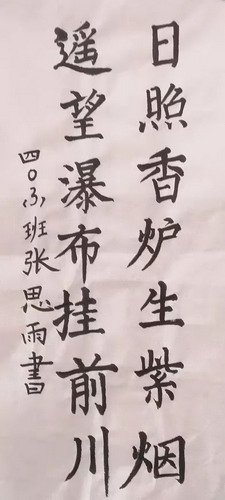 日照香炉生紫烟
遥望瀑布挂前川
四〇3班张思雨書